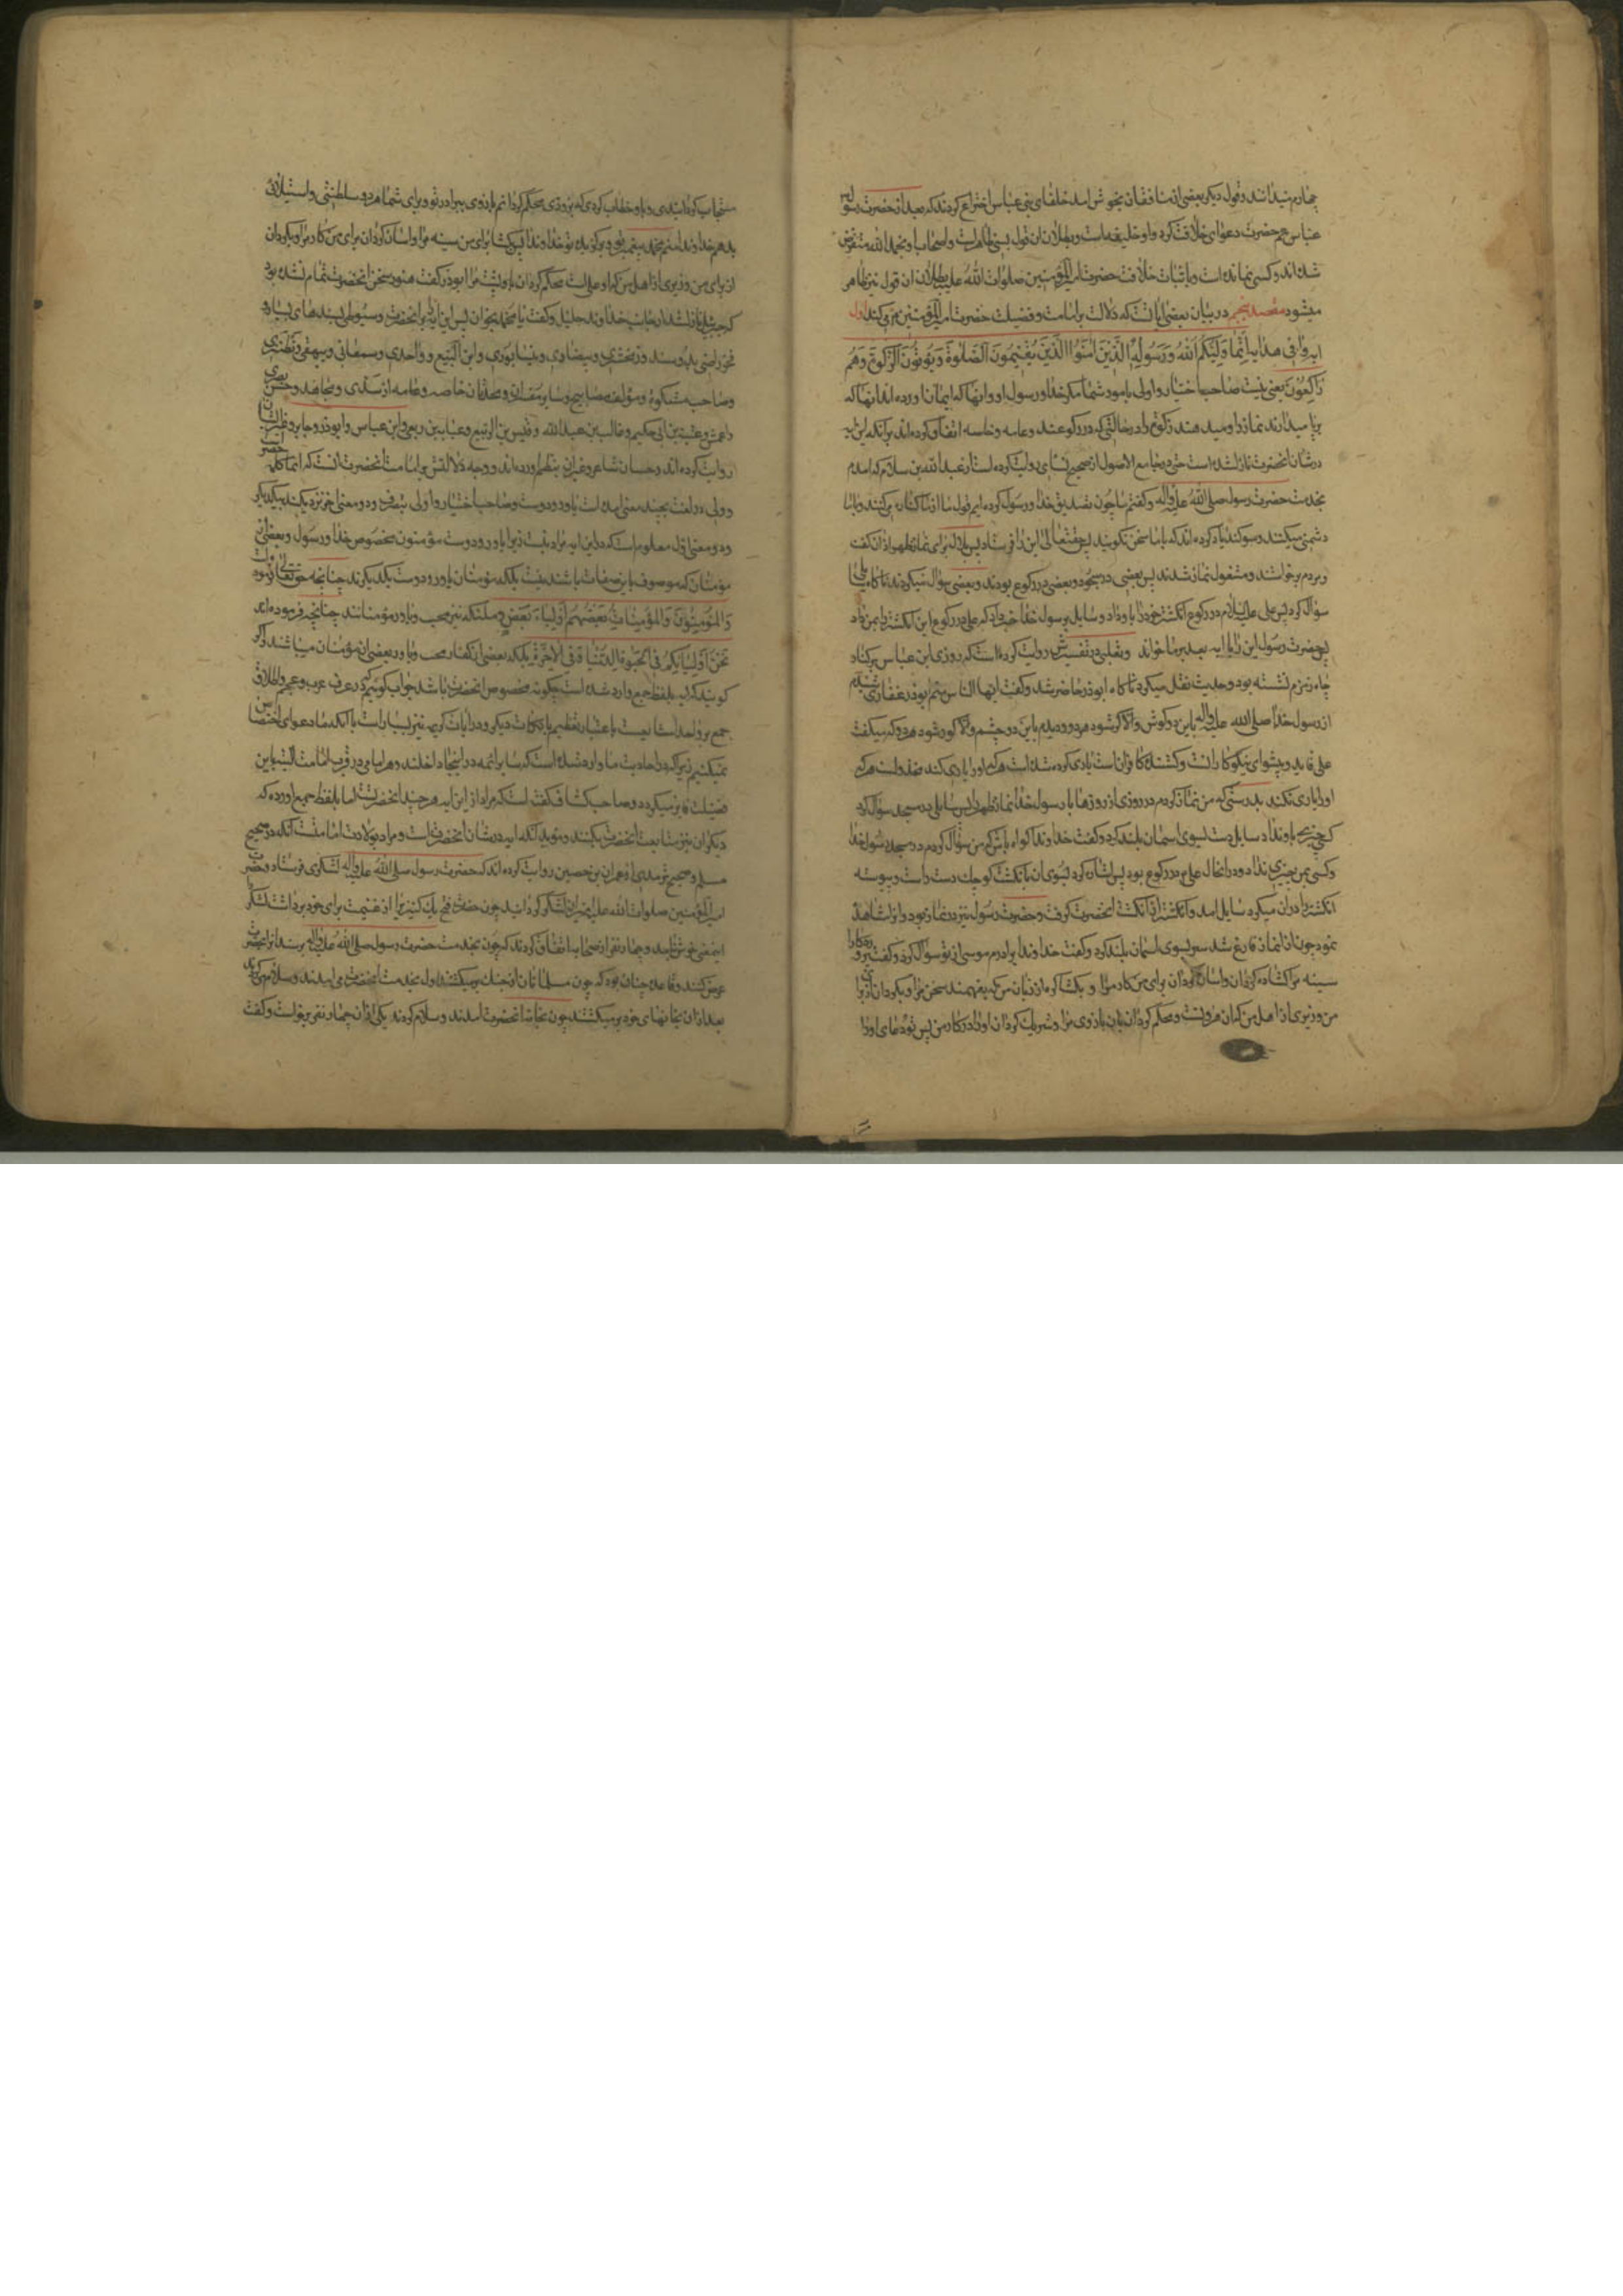 چهارم میدانند و قول دیگر بعضی از منافقان بخوش امد خلفای بنی عباس اختراع کردند که بعد از حضرت رسول
عباس عم حضرت دعوای خلافت کرد و او خلیفه است و بطلان ان قول بسی ظاهر است و اصحاب او بحمد الله منقرض
شده اند و کسی نمانده است و باثبات خلافت حضرت امیرالمؤمنین صلوات الله علیه بطلان ان قول نیز ظاهر
میشود مقصد پنجم در بیان بعضی ایات که دلالت بر امامت و فضیلت حضرت امیرالمؤمنین میکند اول
ایه وافی هدایه اِنَّمٰا وَلِیُّکُمُ اللهُ وَرَسُولُهُ الَّذِینَ اٰمَنُوا الَّذِینَ یُقِیمُونَ الصَّلٰوةَ وَیُؤتُونَ الزَّکٰوةَ وَهُم
رٰاکِعُونَ یعنی نیست صاحب اختیار و اولی بامور شما مگر خدا و رسول او و انها که ایمان اورده اند انها که
برپا میدارند نماز را و میدهند زکوة را در حالتی که در رکوعند و عامه و خاصه اتفاق کرده اند بر انکه این ایه
در شان انحضرت نازل شده است حتی در جامع الاصول از صحیح نسای روایت کرده است از عبد الله بن سلام که امدم
بخدمت حضرت رسول صلی الله علیه واله و گفتم ما چون تصدیق خدا و رسول کرده ایم قوم ما از ما کناره میکنند و با ما
دشمنی میکنند و سوکند یاد کرده اند که با ما سخن نگویند پس حقتعالی این را فرستاد پس بلال برای نماز ظهر اذان گفت
و مردم برخواستند و مشغول نماز شدند پس بعضی در سجود و بعضی در رکوع بودند و بعضی سؤال میکردند ناکاه سایلی
سؤال کرد پس علی علیه السلام در رکوع انکشتر خود را باو داد و سایل برسول خدا خبر داد که علی در رکوع این انکشتر را بمن داد
پس حضرت رسول این را با ایه بعد بر ما خواند و ثعلبی در تفسیرش روایت کرده است که روزی ابن عباس بر کنار
چاه زمزم نشسته بود و حدیث نقل میکرد تا گاه ابوذر حاضر شد و گفت ایها الناس منم ابوذر غفاری شنیدم
از رسول خدا صلی الله علیه واله باین دو گوش و الا کر شود هر دو و دیدم باین دو چشم و الا کور شود هر دو که میگفت
علی قاید و پیشوای نیکوکارانست و کشنده کافرانست یاری کرده شده است هر که او را یاری کند مخذولست هر که
او را یاری نکند بدرستی که من نماز کردم در روزی از روزها با رسول خدا نماز ظهر را پس سایلی در مسجد سؤال کرد
کسی چیزی باو نداد سایل دست بسوی اسمان بلند کرد و گفت خداوندا گواه باش که من سؤال کردم در مسجد رسول خدا
و کسی بمن چیزی نداد و در انحال علی در رکوع بود پس اشاره کرد بسوی ان بانکشت کوچک دست راست و پیوسته
انکشتر را دران میکرد سایل امد و انکشتر را از انکشت انحضرت گرفت و حضرت رسول نیز در نماز بود و انرا مشاهده
نمود چون از نماز فارغ شد سر بسوی اسمان بلند کرد و گفت خداوندا برادرم موسی از تو سؤال کرد و گفت پروردکارا
سینه مرا گشاده گردان و اسان گردان برای من کار مرا و بگشا گره از زبان من که بفهمند سخن مرا و بگردان از برای
من وزیری از اهل من که ان هرونست و محکم گردان بان بازوی مرا و شریک گردان او را در کار من پس تو دعای او را
مستجاب گردانیدی و باو خطاب کردی که بزودی محکم گردانم بازوی ببرادر تو و برای شما هر دو سلطنتی و استیلائی
بدهم خداوندا منم محمد پیغمبر تو و برگزیده تو خداوندا پس بگشا برای من سینه مرا و اسان گردان برای من کار مرا و بگردان
از برای من وزیری از اهل من که او علی است محکم گردان باو پشت مرا ابوذر گفت هنوز سخن انحضرت تمام نشده بود
که جبرئیل نازل شد از جانب خداوند جلیل و گفت یا محمد بخوان پس این ایه را بر انحضرت و سیوطی بسندهای بسیار و
فخر رازی بدو سند و زمخشری و بیضاوی و نیشابوری و ابن البیع و واحدی و سمعانی و بیهقی و نطنزی
و صاحب مشکوة و مؤلف مصابیح و سایر مفسران و محدثان خاصه و عامه از سدی و مجاهد و حسن بصری
و اعمش و عتبة بن ابی حکیم و غالب بن عبد الله و قیس بن الربیع و عبایة بن ربعی و ابن عباس و ابوذر و جابر و غیر ایشان
روایت کرده اند و حسان شاعر و غیر ان بنظم اورده اند و وجه دلالتش بر امامت انحضرت انست که انما کلمه حصر است
و ولی در لغت بچند معنی امده است یاور و دوست و صاحب اختیار و اولی بتصرف و دو معنی اخر نزدیکند بیکدیگر
و دو معنی اول معلوم است که در این ایه مراد نیست زیرا یاور و دوست مؤمنون مخصوص خدا و رسول و بعضی از
مؤمنان که موصوف باین صفات باشند نیست بلکه مؤمنان یاور و دوست یکدیگرند چنانچه حقتعالی فرموده است
وَالمُؤمِنُونَ وَالمُؤمِنٰاتُ بَعضُهُم اَولِیٰاءُ بَعضٍ و ملئکه نیز محب و یاور مؤمنانند چنانچه فرموده اند
نَحنُ اَولِیٰاؤُکُم فِی الحَیٰوةِ الدُّنیٰا وَفِی الاٰخِرَةِ بلکه بعضی از کفار محب و یاور بعضی از مؤمنان میباشند و اگر
گویند که ایه بلفظ جمع وارد شده است چگونه مخصوص انحضرت باشد جواب گوئیم که در عرف عرب و عجم اطلاق
جمع بر واحد است باعتبار تعظیم یا نکات دیگر و در ایات کریمه نیز بسیار است با انکه ما دعوای اختصاص
نمیکنیم زیرا که در احادیث ما وارد شده است که سایر ائمه در اینجا داخلند و هر امامی در قرب امامت البته باین
فضیلت فایز میگردد و صاحب کشاف گفته است که مراد از این ایه هر چند انحضرت است اما بلفظ جمع اورده که
دیگران نیز متابعت انحضرت بکنند و مؤید انکه ایه در شان انحضرت است و مراد بولایت امامتست انکه در صحیح
مسلم و صحیح ترمذی از عمران بن حصین روایت کرده اند که حضرت رسول صلی الله علیه واله لشکری فرستاد و حضرت
امیرالمؤمنین صلوات الله علیه را امیر ان لشکر گردانید چون حضرت فتح یک کنیز را از غنیمت برای خود برداشت لشکر را
اینمعنی خوش نیامد و چهار نفر از صحابه اتفاق کردند که چون بخدمت حضرت رسول صلی الله علیه واله برسند انرا بحضرت
عرض کنند و قاعده چنان بود که چون مسلمانان از جنک برمیگشتند اول بخدمت انحضرت می امدند و سلام میکردند
بعد از ان بخانهای خود برمیگشتند چون بخدمت انحضرت امدند و سلام کردند یکی از ان چهار نفر برخواست و گفت